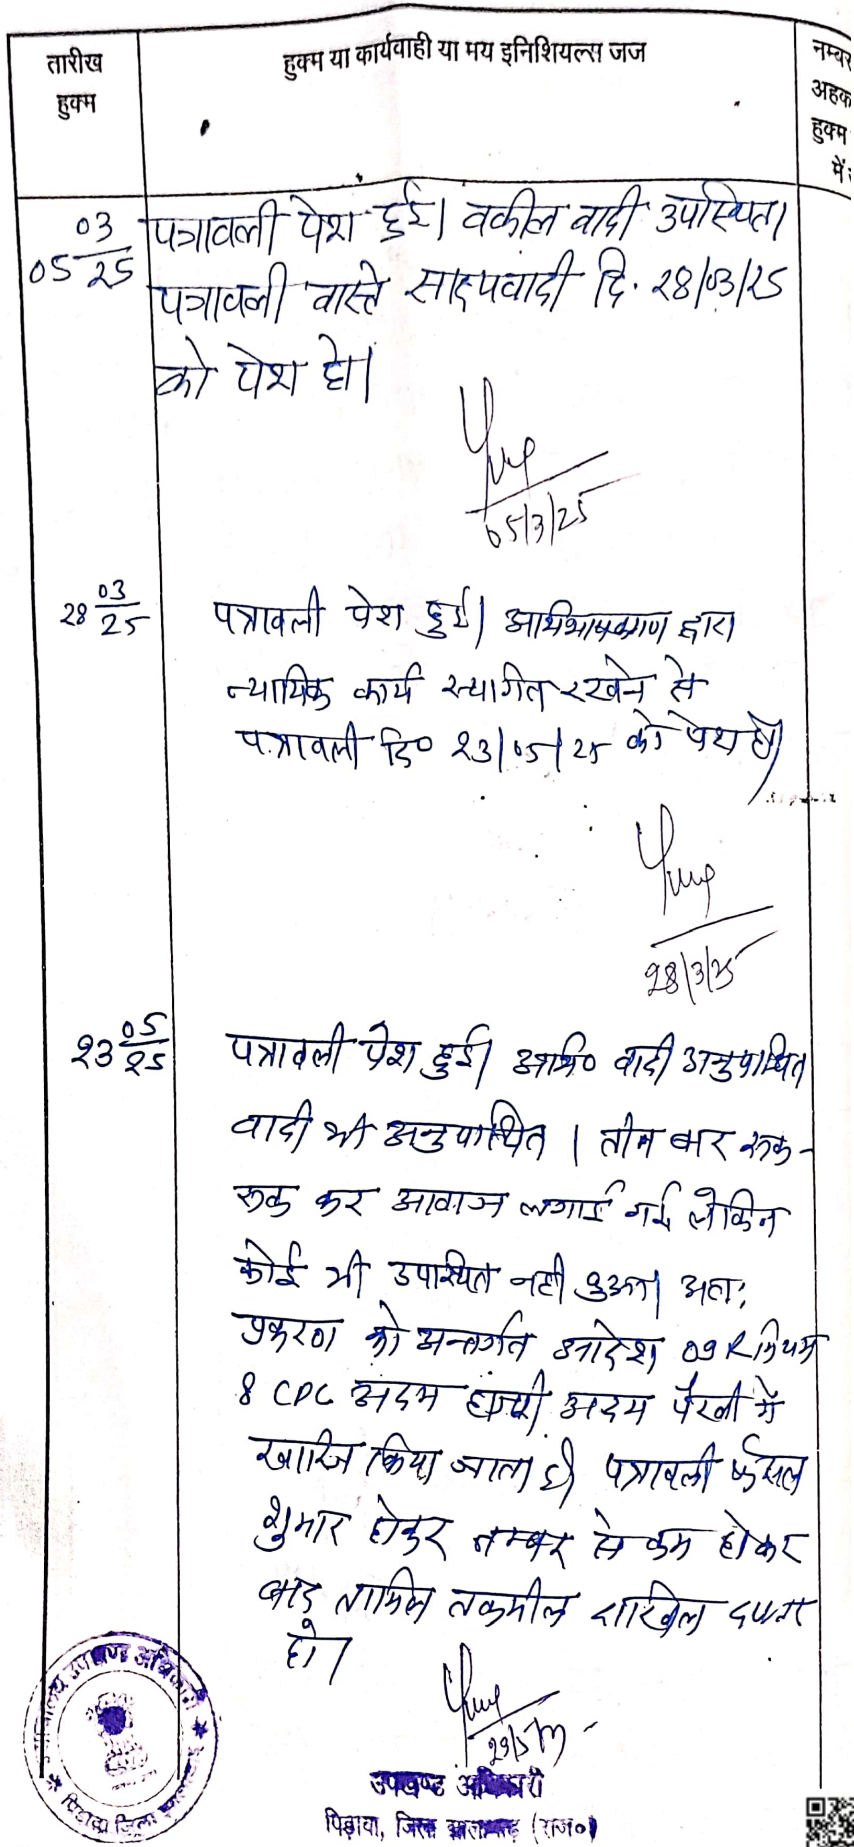 तारीख
हुक्म
हुक्म या कार्यवाही या मय इनिशियल्स जज
नम्बर
अहक
हुक्म
में
05 03/25
पत्रावली पेश हुई। वकील वादी उपस्थित।
पत्रावली वास्ते साक्ष्यवादी दि. 28/03/25
को पेश हो।
05/3/25
28 03/25
पत्रावली पेश हुई। अभिभाषकगण द्वारा
न्यायिक कार्य स्थगित रखने से
पत्रावली दि० 23/05/25 को पेश हो
28/3/25
23 05/25
पत्रावली पेश हुई। अभि० वादी अनुपस्थित
वादी भी अनुपस्थित । तीन बार रुक-
रुक कर आवाज लगाई गई लेकिन
कोई भी उपस्थित नही हुआ। अतः
प्रकरण को अन्तर्गत आदेश 09 R नियम
8 CPC अदम हाजरी अदम पैरवी में
खारिज किया जाता है। पत्रावली फैसल
शुमार होकर नम्बर से कम होकर
बाद तामिल तकमील दाखिल दफ्तर
हो।
उपखण्ड अधिकारी
पिड़ावा, जिला झालावाड़ (राज०)